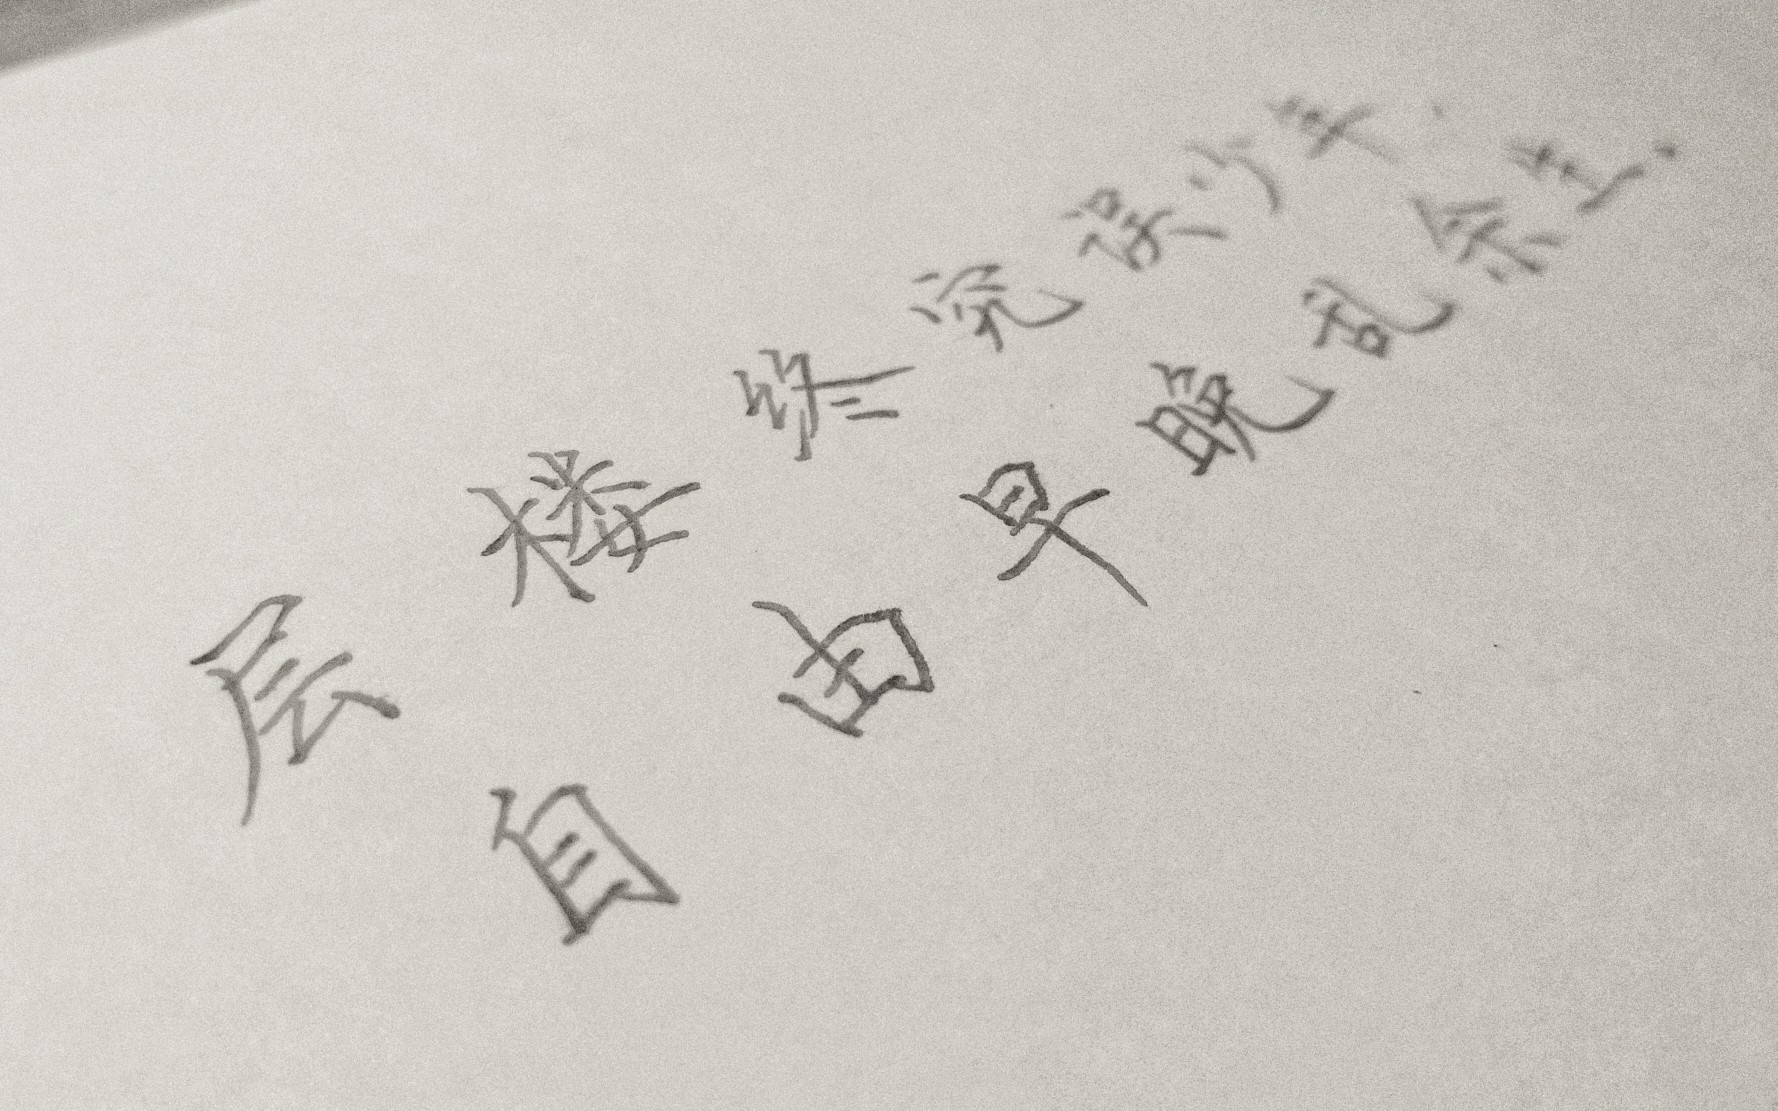 层楼终究误少年，
自由早晚乱余生。